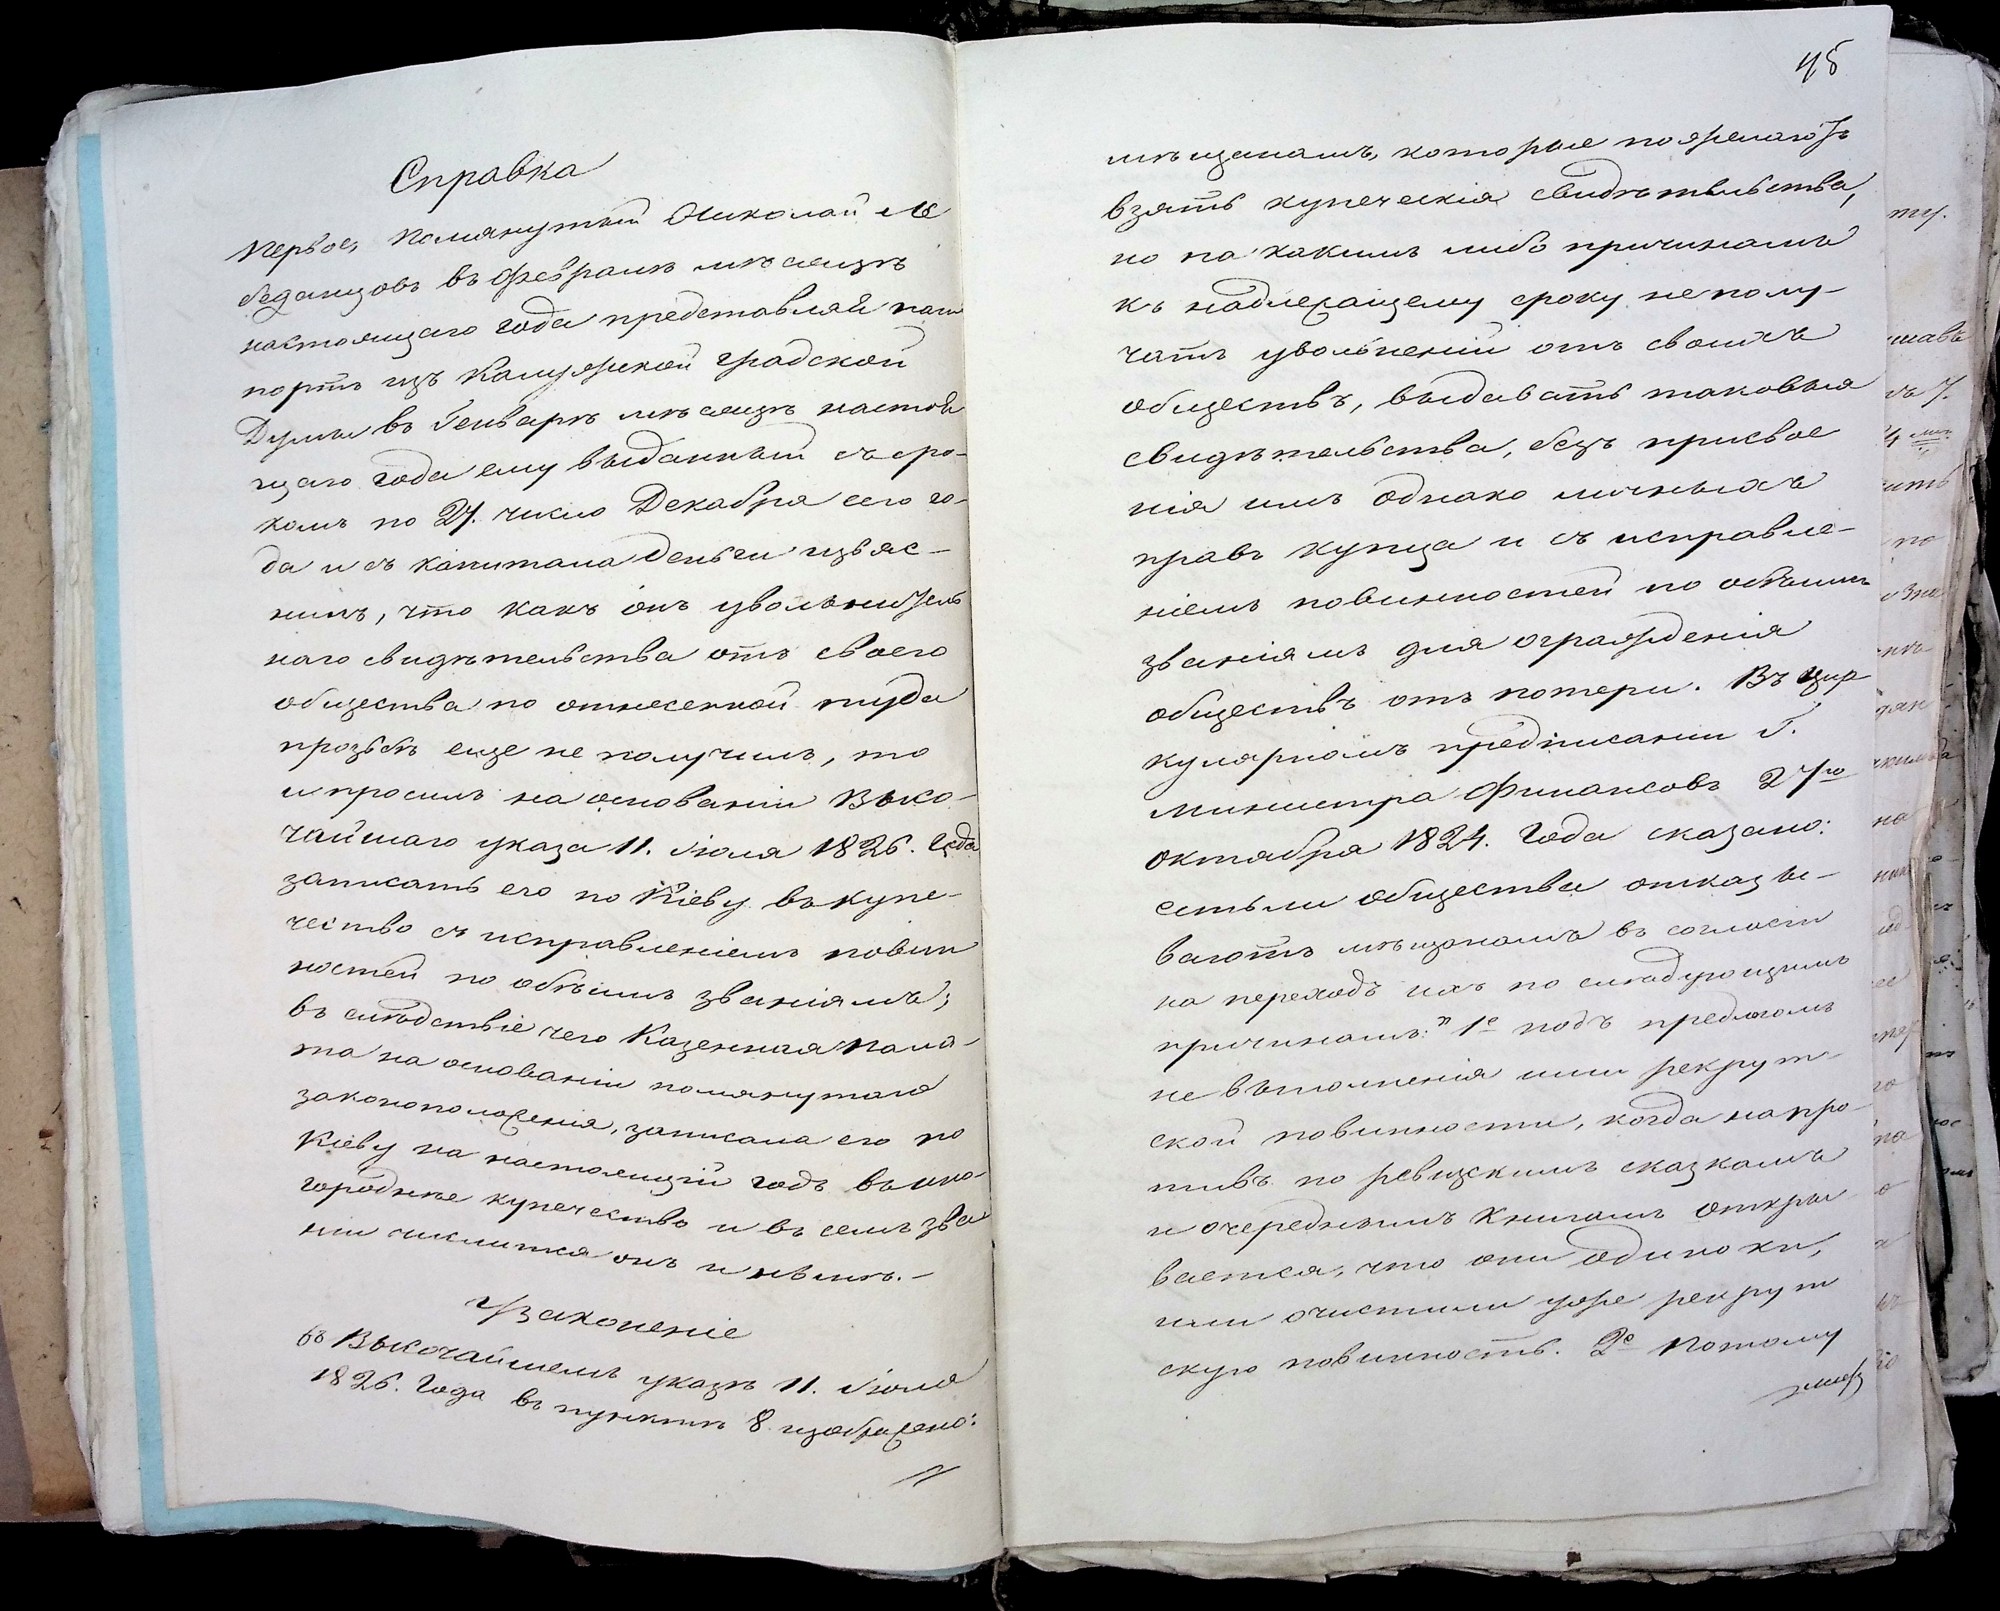 Справка
Первое, Помянутый Николай Ле
беданцовъ въ Февралѣ мѣсяцѣ
настоящаго года представляя пас
портъ изъ Калужской градской
Думы въ Генварѣ мѣсяцѣ настоя
щаго года ему выданный съ сро-
комъ по 27. число Декабря сего го-
да и съ капитала деньги изъяс-
нилъ, что какъ онъ увольнитель
наго свидѣтельства отъ своего
общества по отнесенной туда
прозьбѣ еще не получилъ, то
и просилъ на основаніи Высо-
чайшаго указа 11. Іюля 1826. года
записать его по Кіеву въ купе-
чество съ исправленіемъ повин
ностей по обѣимъ званіямъ;
въ слѣдствіе чего Казенная пала-
та на основаніи помянутаго
законоположенія, записала его по
Кіеву на настоящій годъ въ ино-
городнѣе купечество и въ семъ зва
ніи числится онъ и нынѣ. —
Узаконеніе
въ Высочайшемъ указѣ 11. Іюля
1826. года въ пунктѣ 8 изображено:
48
мѣщанамъ, которые пожелаютъ
взять купеческія свидѣтельства,
но по какимъ либо причинамъ
къ надлежащему сроку не полу-
чатъ увольненій отъ своихъ
обществъ, выдавать таковыя
свидѣтельства, безъ присвое
нія имъ однако личныхъ
правъ купца и съ исправле-
ніемъ повинностей по обѣимъ
званіямъ для огражденія
обществъ отъ потери. Въ цир
кулярномъ предписаніи Г.
Министра Финансовъ 27го
октября 1824. года сказано:
естьли общества отказы-
ваютъ мѣщанамъ въ согласіи
на переходъ ихъ по слѣдующимъ
причинамъ: 1е подъ предлогомъ
не выполненія ими рекрут-
ской повинности, когда напро-
тивъ по ревизскимъ сказкамъ
и очереднымъ книгамъ откры
вается, что они одиноки,
или очистили уже рекрут
скую повинность. 2е Потому